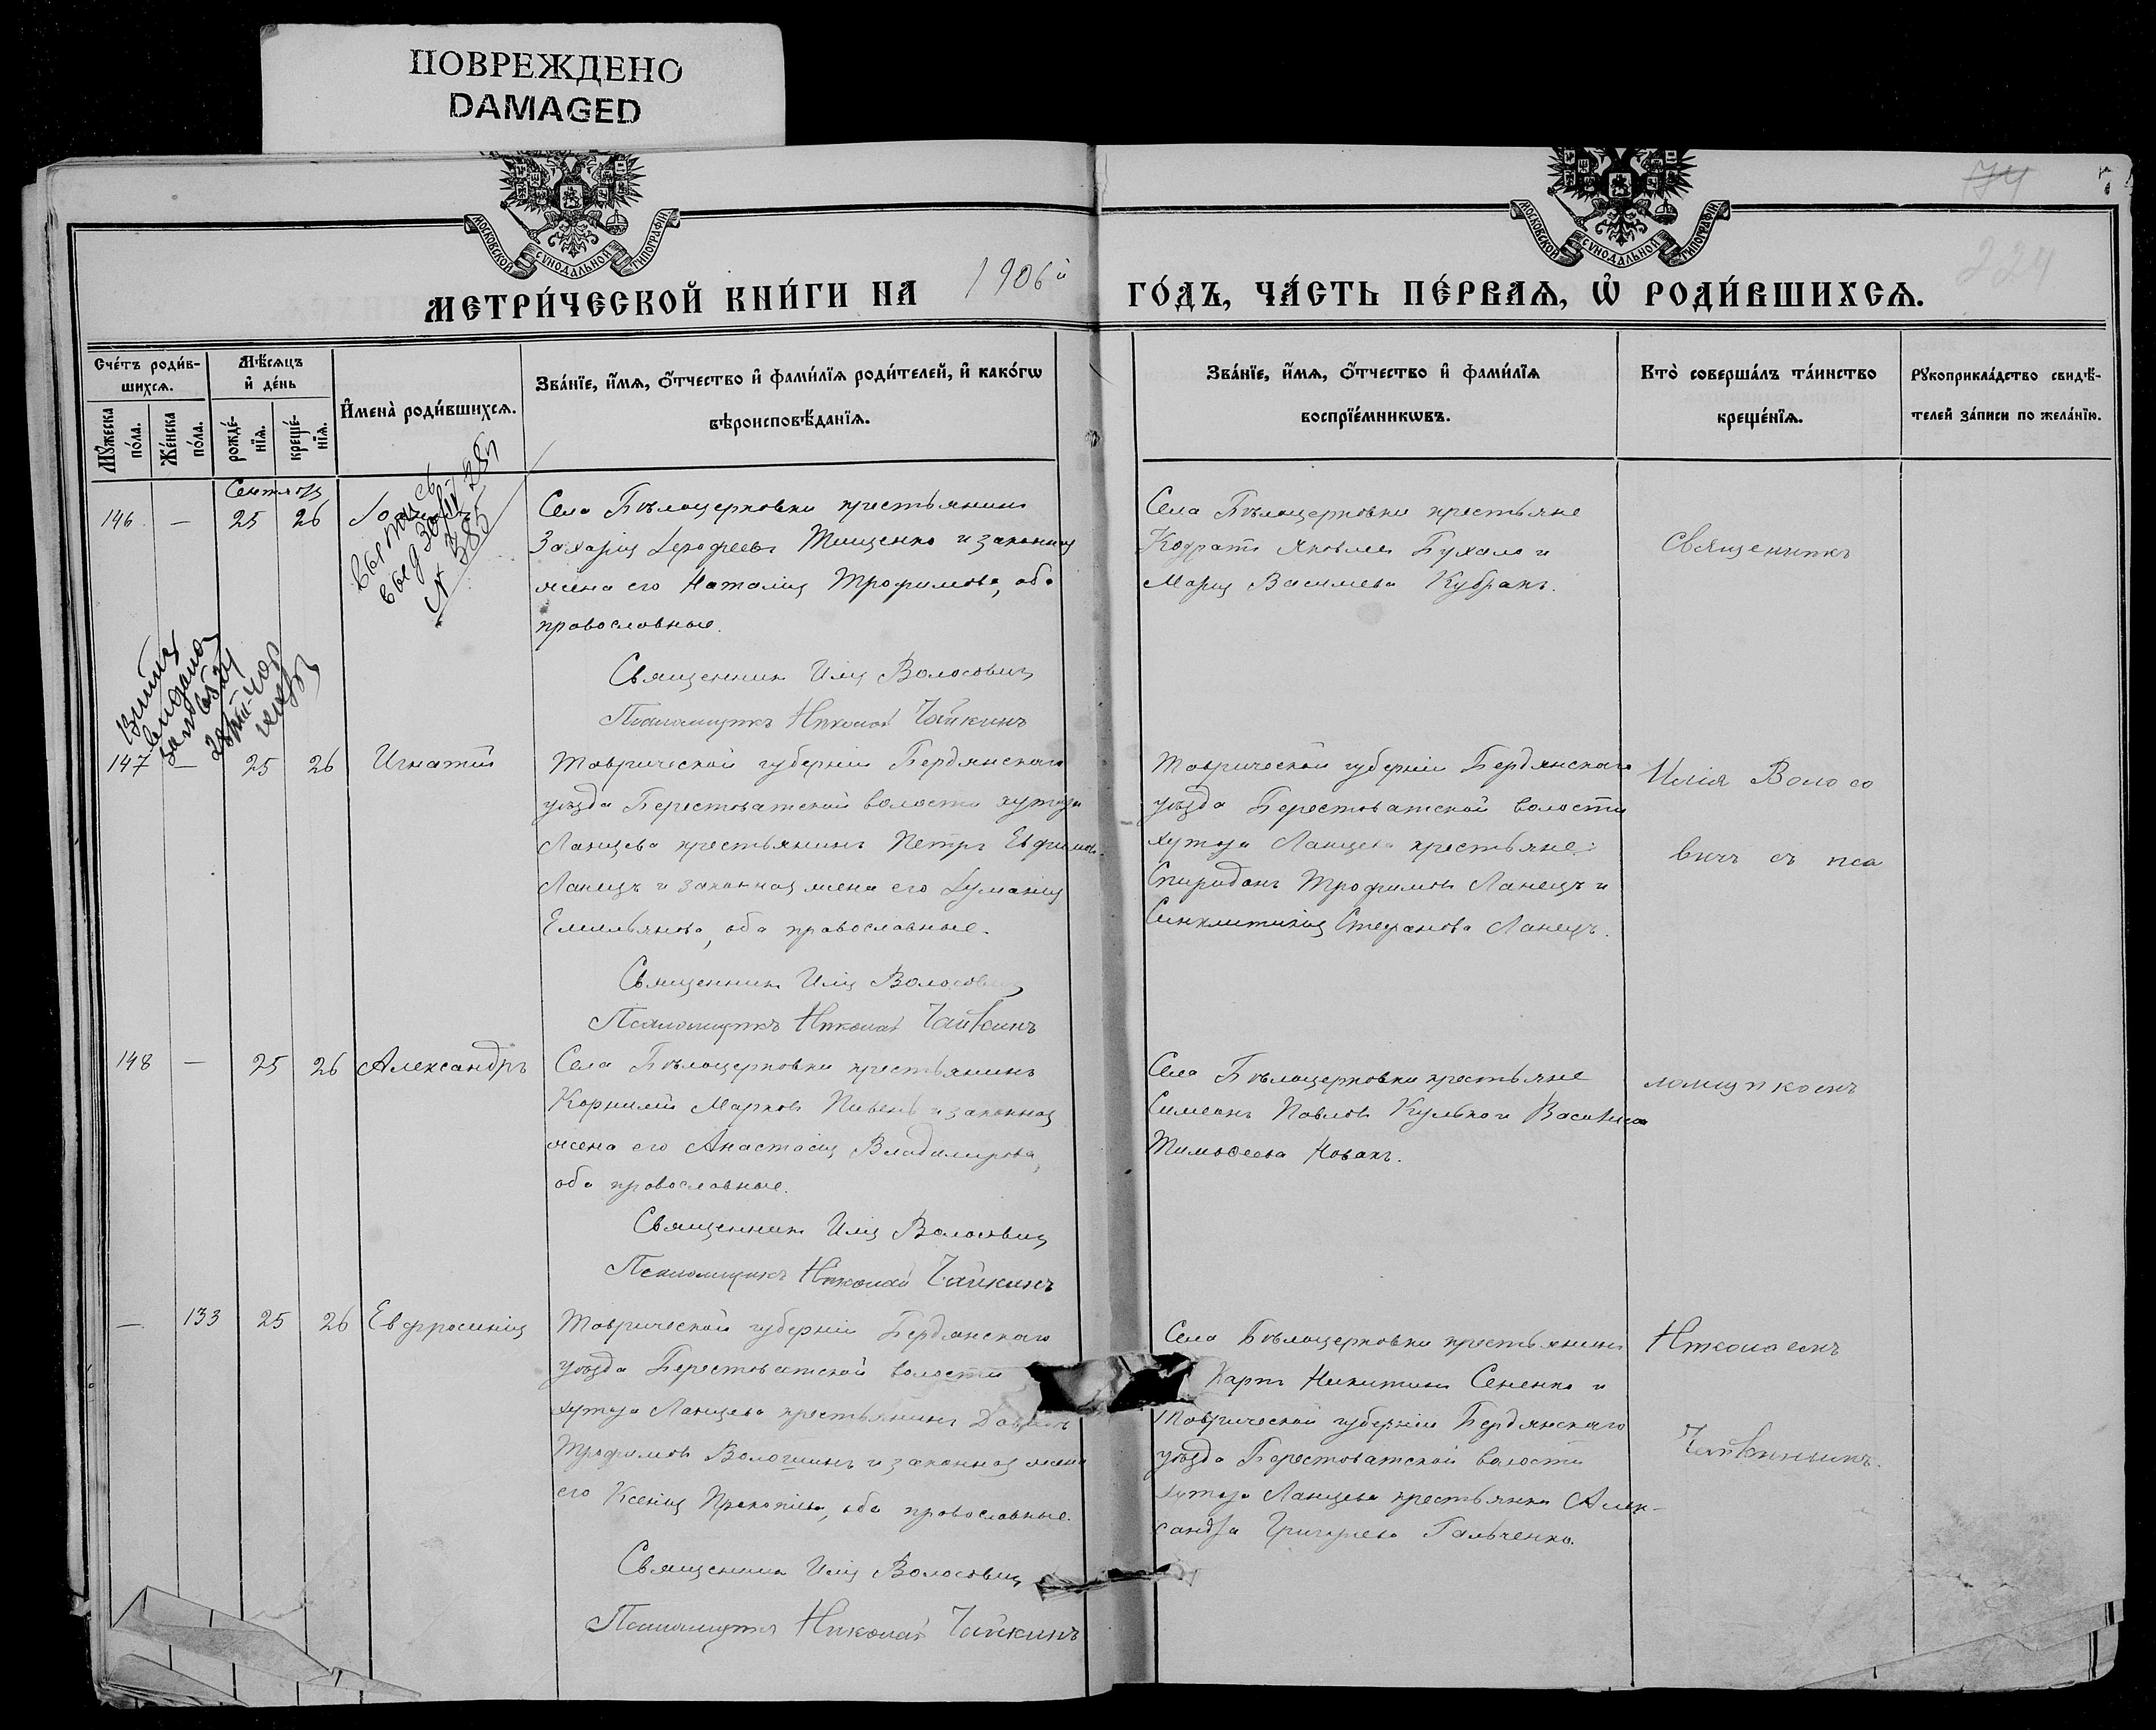 ПОВРЕЖДЕНО
DAMAGED
МОСКОВСКОЙ СУНОДАЛЬНОЙ ТИПОГРАФІИ
МОСКОВСКОЙ СУНОДАЛЬНОЙ ТИПОГРАФІИ
174
224
МЕТРИ́ЧЕСКОЙ КНИ́ГИ НА 1906й ГО́ДЪ, ЧА́СТЬ ПЕ́РВАѦ, Ѡ РОДИ́ВШИХСѦ.
Сче́тъ роди́в-
шихсѧ.
Мꙋ́жеска по́ла.
Же́нска по́ла.
Мѣ́сѧцъ
и҆ де́нь
рожде́-
нїѧ.
креще́-
нїѧ.
И҆мена̀ роди́вшихсѧ.
Зва́нїе, и҆́мѧ, ѻ҆́тчество и҆ фами́лїѧ роди́телей, и҆ како́гѡ
вѣроисповѣ́данїѧ.
Зва́нїе, и҆́мѧ, ѻ҆́тчество и҆ фами́лїѧ
воспрїе́мникѡвъ.
Кто̀ соверша́лъ та́инство
креще́нїѧ.
Рꙋкоприкла́дство свидѣ́-
телей за́писи по жела́нїю.
Сентябрь
146 — 25 26
№ 385
Села Бѣлоцерковки крестьянинъ
Захарія Ерофеевъ Тищенко и законная
жена его Наталія Трофимова, оба
православные.
Священникъ Илія Волосовичъ
Псаломщикъ Николай Чайкинъ
Села Бѣлоцерковки крестьяне
Кодратъ Яковлевъ Бухало и
Марія Васильева Кубракъ.
Священникъ
147 — 25 26 Игнатій
Таврической губерніи Бердянскаго
уѣзда Берестоватской волости хутора
Ланцева крестьянинъ Петръ Евфимовъ
Ланецъ и законная жена его Іуманія
Емельянова, оба православные.
Священникъ Илія Волосовичъ
Псаломщикъ Николай Чайкинъ
Таврической губерніи Бердянскаго
уѣзда Берестоватской волости
хутора Ланцева крестьяне:
Спиридонъ Трофимовъ Ланецъ и
Синклитикія Стефанова Ланецъ.
Илія Волосо
вичъ съ пса
148 — 25 26 Александръ
Села Бѣлоцерковки крестьянинъ
Корнилій Марковъ Пивень и законная
жена его Анастасія Владимирова,
оба православные.
Священникъ Илія Волосовичъ
Псаломщикъ Николай Чайкинъ
Села Бѣлоцерковки крестьяне
Симеонъ Павловъ Кулько и Василиса
Тимоѳеева Новакъ.
ломщикомъ
— 133 25 26 Евфросинія
Таврической губерніи Бердянскаго
уѣзда Берестоватской волости
хутора Ланцева крестьянинъ
Трофимовъ Волошинъ и законная жена
его Ксенія Прокопіева, оба православные.
Священникъ Илія Волосовичъ
Псаломщикъ Николай Чайкинъ
Села Бѣлоцерковки крестьянинъ
Карпъ Никитинъ Сененко и
Таврической губерніи Бердянскаго
уѣзда Берестоватской волости
хутора Ланцева крестьянка Алек-
сандра Григорьева Гальченко.
Николаемъ
Чайкинымъ.